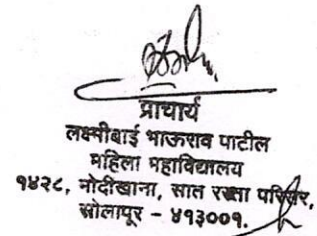 प्राचार्य
लक्ष्मीबाई भाऊराव पाटील
महिला महाविद्यालय
१४२८, मोदीखाना, सात रस्ता परिसर,
सोलापूर - ४१३००१.